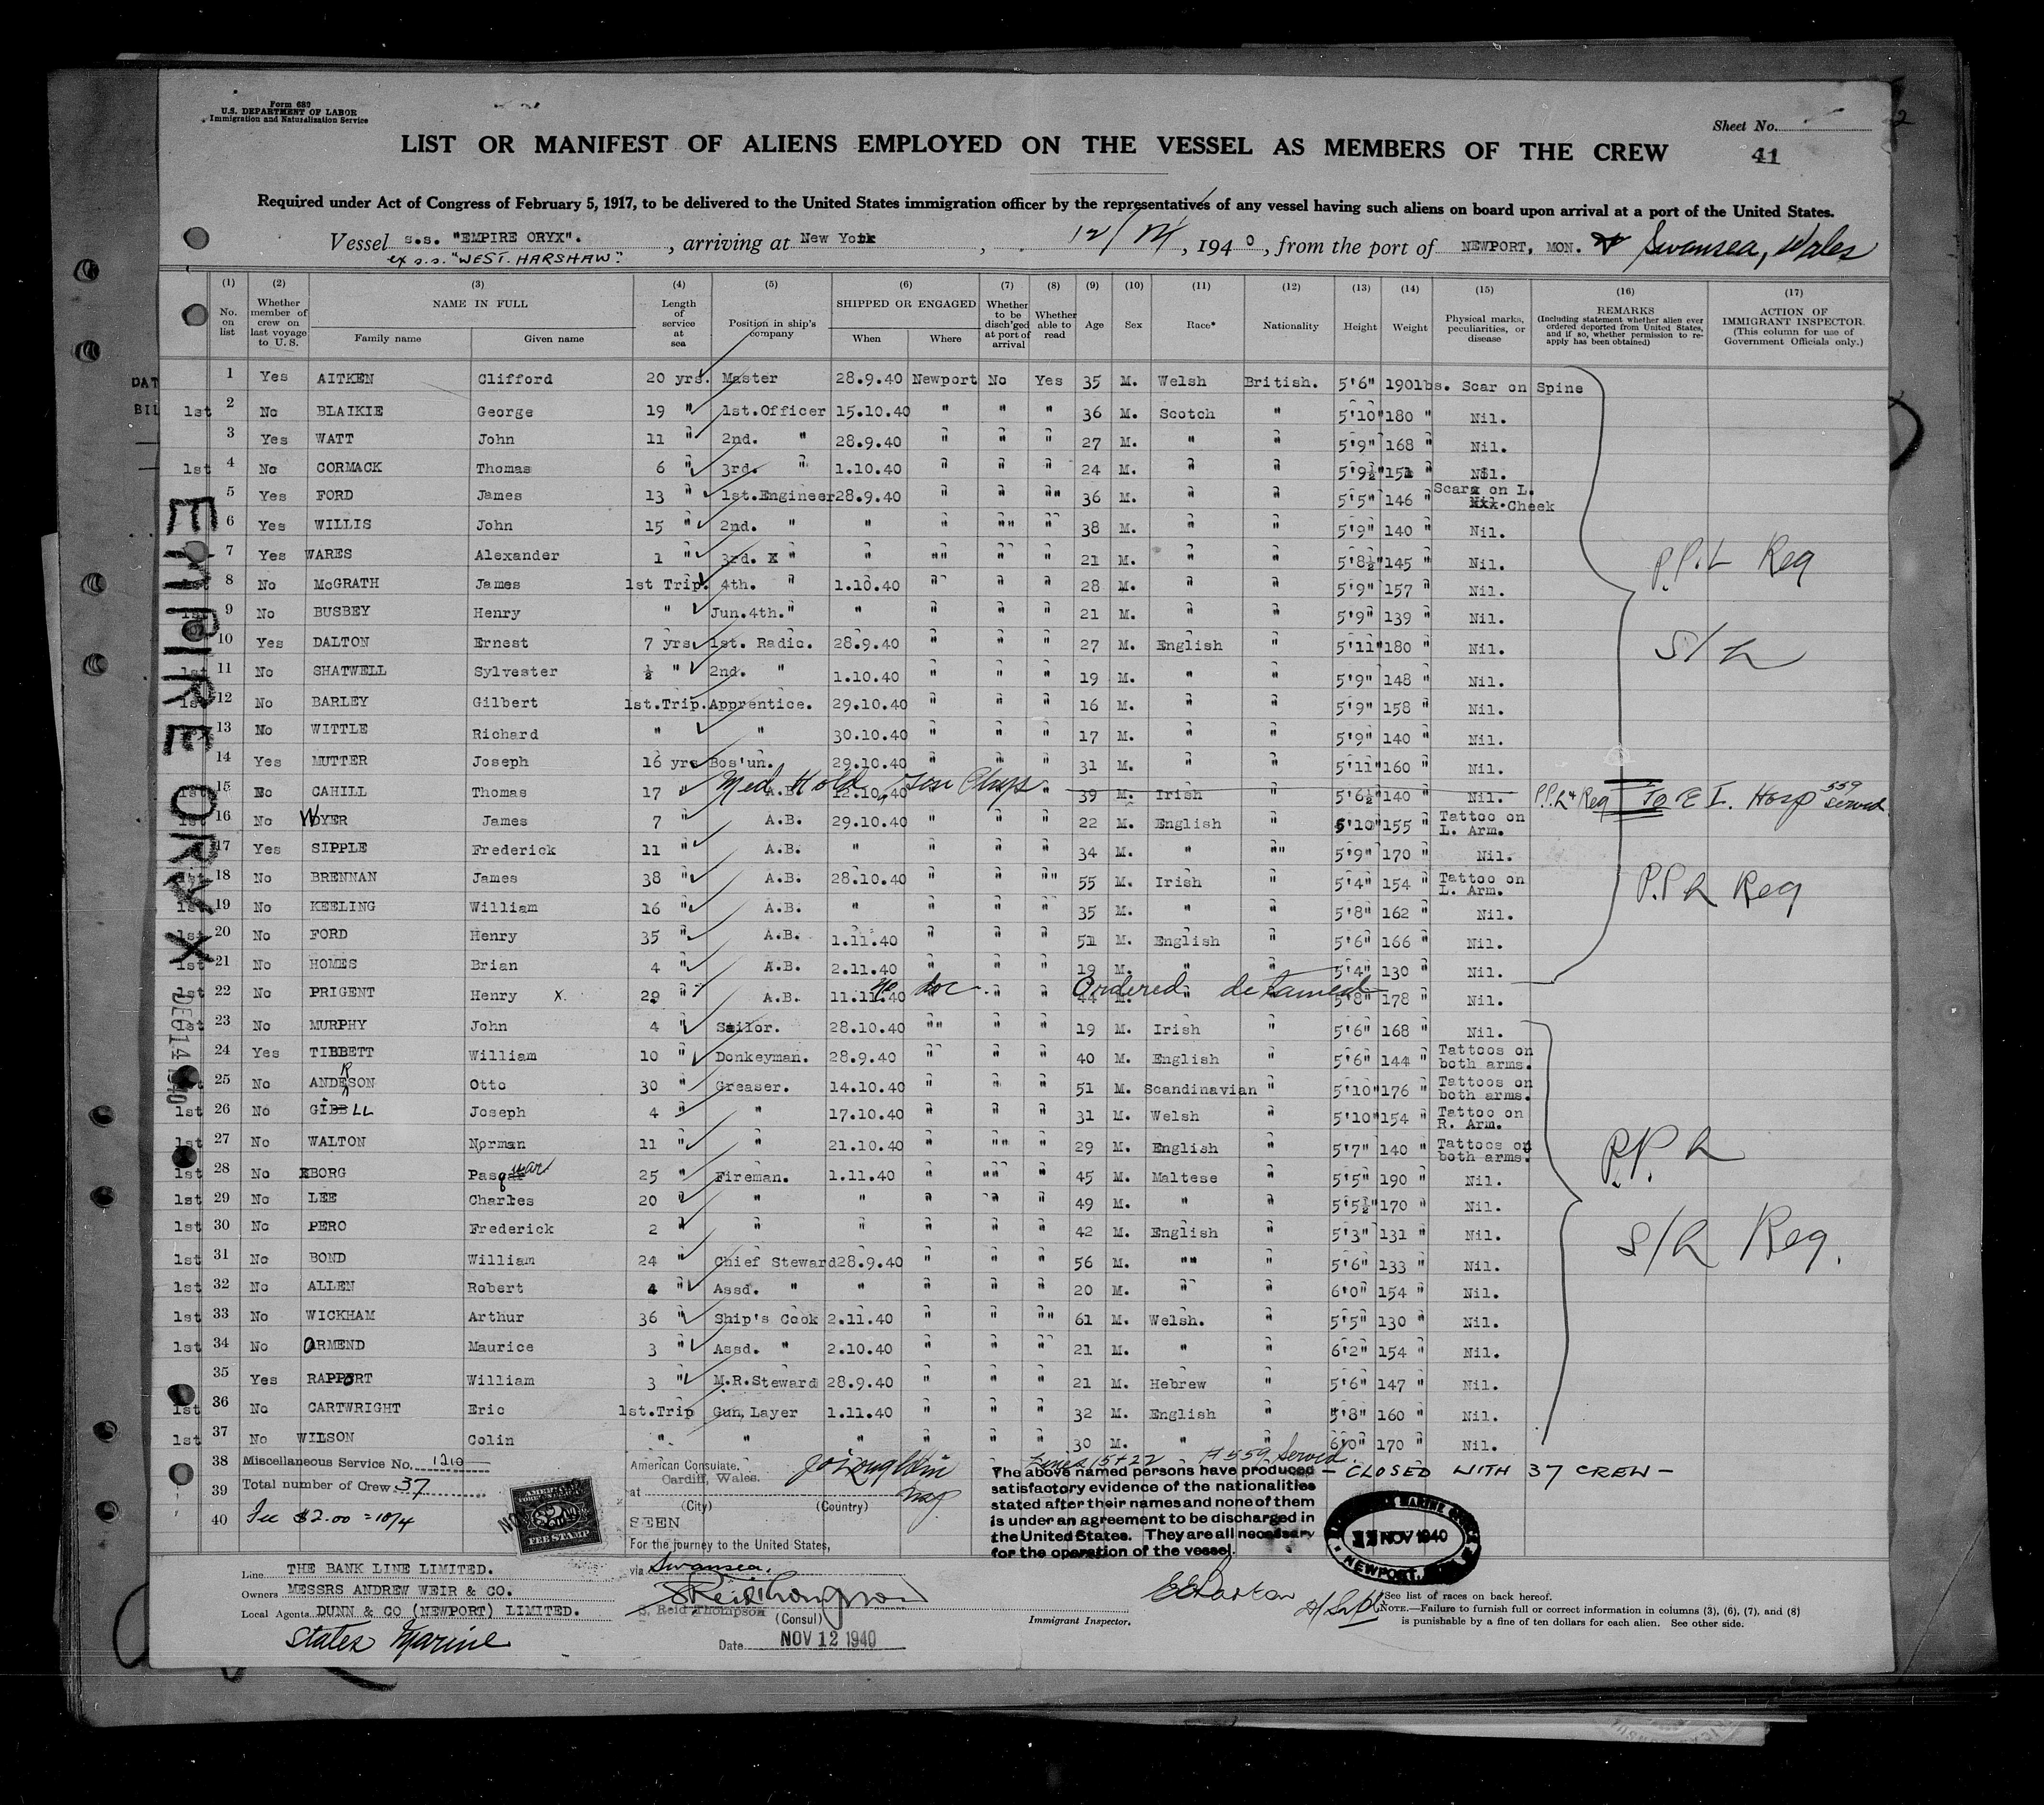 Form 689
U.S. DEPARTMENT OF LABOR
Immigration and Naturalization Service
Sheet No.
2
LIST OR MANIFEST OF ALIENS EMPLOYED ON THE VESSEL AS MEMBERS OF THE CREW
41
Required under Act of Congress of February 5, 1917, to be delivered to the United States immigration officer by the representatives of any vessel having such aliens on board upon arrival at a port of the United States.
Vessel s.s. "EMPIRE ORYX". , arriving at New York , 12/14 , 1940 , from the port of NEWPORT, MON. & Swansea, Wales
ex s.s. "WEST. HARSHAW".
(1) No. on list (2) Whether member of crew on last voyage to U. S. (3) NAME IN FULL Family name Given name (4) Length of service at sea (5) Position in ship's company (6) SHIPPED OR ENGAGED When Where (7) Whether to be disch'ged at port of arrival (8) Whether able to read (9) Age (10) Sex (11) Race* (12) Nationality (13) Height (14) Weight (15) Physical marks, peculiarities, or disease (16) REMARKS (Including statement whether alien ever ordered deported from United States, and if so, whether permission to re-apply has been obtained) (17) ACTION OF IMMIGRANT INSPECTOR (This column for use of Government Officials only.)
1 Yes AITKEN Clifford 20 yrs. Master 28.9.40 Newport No Yes 35 M. Welsh British. 5'6" 190lbs. Scar on Spine
1st 2 No BLAIKIE George 19 " 1st.Officer 15.10.40 " " " 36 M. Scotch " 5'10" 180 " Nil.
3 Yes WATT John 11 " 2nd. " 28.9.40 " " " 27 M. " " 5'9" 168 " Nil.
1st 4 No CORMACK Thomas 6 " 3rd. " 1.10.40 " " " 24 M. " " 5'9½" 151 " Nil.
5 Yes FORD James 13 " 1st.Engineer 28.9.40 " " " 36 M. " " 5'5" 146 " Scar on L. Cheek
6 Yes WILLIS John 15 " 2nd. " " " " " 38 M. " " 5'9" 140 " Nil.
7 Yes WARES Alexander 1 " 3rd. " " " " " 21 M. " " 5'8½" 145 " Nil.
P.P.L Req
1st 8 No McGRATH James 1st Trip. 4th. " 1.10.40 " " " 28 M. " " 5'9" 157 " Nil.
1st 9 No BUSBEY Henry " " Jun.4th." " " " " 21 M. " " 5'9" 139 " Nil.
10 Yes DALTON Ernest 7 yrs. 1st. Radio. 28.9.40 " " " 27 M. English " 5'11" 180 " Nil.
1st 11 No SHATWELL Sylvester ½ " 2nd. " 1.10.40 " " " 19 M. " " 5'9" 148 " Nil.
1st 12 No BARLEY Gilbert 1st.Trip. Apprentice. 29.10.40 " " " 16 M. " " 5'9" 158 " Nil.
13 No WITTLE Richard " " 30.10.40 " " " 17 M. " " 5'9" 140 " Nil.
14 Yes MUTTER Joseph 16 yrs Bos'un. 29.10.40 " " " 31 M. " " 5'11" 160 " Nil.
1st 15 No CAHILL Thomas 17 " A.B. 12.10.40 Med. Hold " 39 M. Irish " 5'6½" 140 " Nil. P.P.L Req To E. I. Hosp 559 Served
1st 16 No DYER James 7 " A.B. 29.10.40 " " " 22 M. English " 5'10" 155 " Tattoo on L. Arm.
17 Yes SIPPLE Frederick 11 " A.B. " " " " 34 M. " " 5'9" 170 " Nil.
1st 18 No BRENNAN James 38 " A.B. 28.10.40 " " " 55 M. Irish " 5'4" 154 " Tattoo on L. Arm.
1st 19 No KEELING William 16 " A.B. " " " " 35 M. " " 5'8" 162 " Nil.
1st 20 No FORD Henry 35 " A.B. 1.11.40 " " " 51 M. English " 5'6" 166 " Nil.
1st 21 No HOMES Brian 4 " A.B. 2.11.40 " " " 19 M. " " 5'4" 130 " Nil.
1st 22 No PRIGENT Henry X. 29 " A.B. 11.11.40 no doc. " " 44 M. " " 5'8" 178 " Nil. Ordered detained
1st 23 No MURPHY John 4 " Sailor. 28.10.40 " " " 19 M. Irish " 5'6" 168 " Nil.
24 Yes TIBBETT William 10 " Donkeyman. 28.9.40 " " " 40 M. English " 5'6" 144 " Tattoos on both arms.
1st 25 No ANDERSON Otto 30 " Greaser. 14.10.40 " " " 51 M. Scandinavian " 5'10" 176 " Tattoos on both arms.
1st 26 No GILL Joseph 4 " " 17.10.40 " " " 31 M. Welsh " 5'10" 154 " Tattoo on R. Arm.
1st 27 No WALTON Norman 11 " " 21.10.40 " " " 29 M. English " 5'7" 140 " Tattoos on both arms.
1st 28 No BORG Pasquar 25 " Fireman. 1.11.40 " " " 45 M. Maltese " 5'5" 190 " Nil.
1st 29 No LEE Charles 20 " " " " " " 49 M. " " 5'5½" 170 " Nil.
1st 30 No PERO Frederick 2 " " " " " " 42 M. English " 5'3" 131 " Nil.
1st 31 No BOND William 24 " Chief Steward 28.9.40 " " " 56 M. " " 5'6" 133 " Nil.
1st 32 No ALLEN Robert 4 " Assd. " " " " " 20 M. " " 6'0" 154 " Nil.
1st 33 No WICKHAM Arthur 36 " Ship's Cook 2.11.40 " " " 61 M. Welsh. " 5'5" 130 " Nil.
1st 34 No ORMEND Maurice 3 " Assd. " 2.10.40 " " " 21 M. " " 6'2" 154 " Nil.
35 Yes RAPPORT William 3 " M.R.Steward 28.9.40 " " " 21 M. Hebrew " 5'6" 147 " Nil.
1st 36 No CARTWRIGHT Eric 1st.Trip Gun Layer 1.11.40 " " " 32 M. English " 5'8" 160 " Nil.
1st 37 No WILSON Colin " " " " " " 30 M. " " 6'0" 170 " Nil.
P.P.L Req
S/L Req.
EMPIRE ORYX
DEC 14 1940
Lines 15 + 22 # 559 Served.
38 Miscellaneous Service No. 1210
39 Total number of Crew 37
40 Fee $2.00 = 10/4
AMERICAN
FEE STAMP
American Consulate.
Cardiff, Wales.
at
(City) (Country)
SEEN
For the journey to the United States,
via Swansea.
S. Reid Thompson
(Consul)
Date NOV 12 1940
The above named persons have produced
satisfactory evidence of the nationalities
stated after their names and none of them
is under an agreement to be discharged in
the United States. They are all necessary
for the operation of the vessel.
– CLOSED WITH 37 CREW –
NOV 1940
NEWPORT
Line THE BANK LINE LIMITED.
Owners MESSRS ANDREW WEIR & CO.
Local Agents DUNN & CO (NEWPORT) LIMITED.
States Marine
Immigrant Inspector.
*See list of races on back hereof.
NOTE.—Failure to furnish full or correct information in columns (3), (6), (7), and (8)
is punishable by a fine of ten dollars for each alien. See other side.